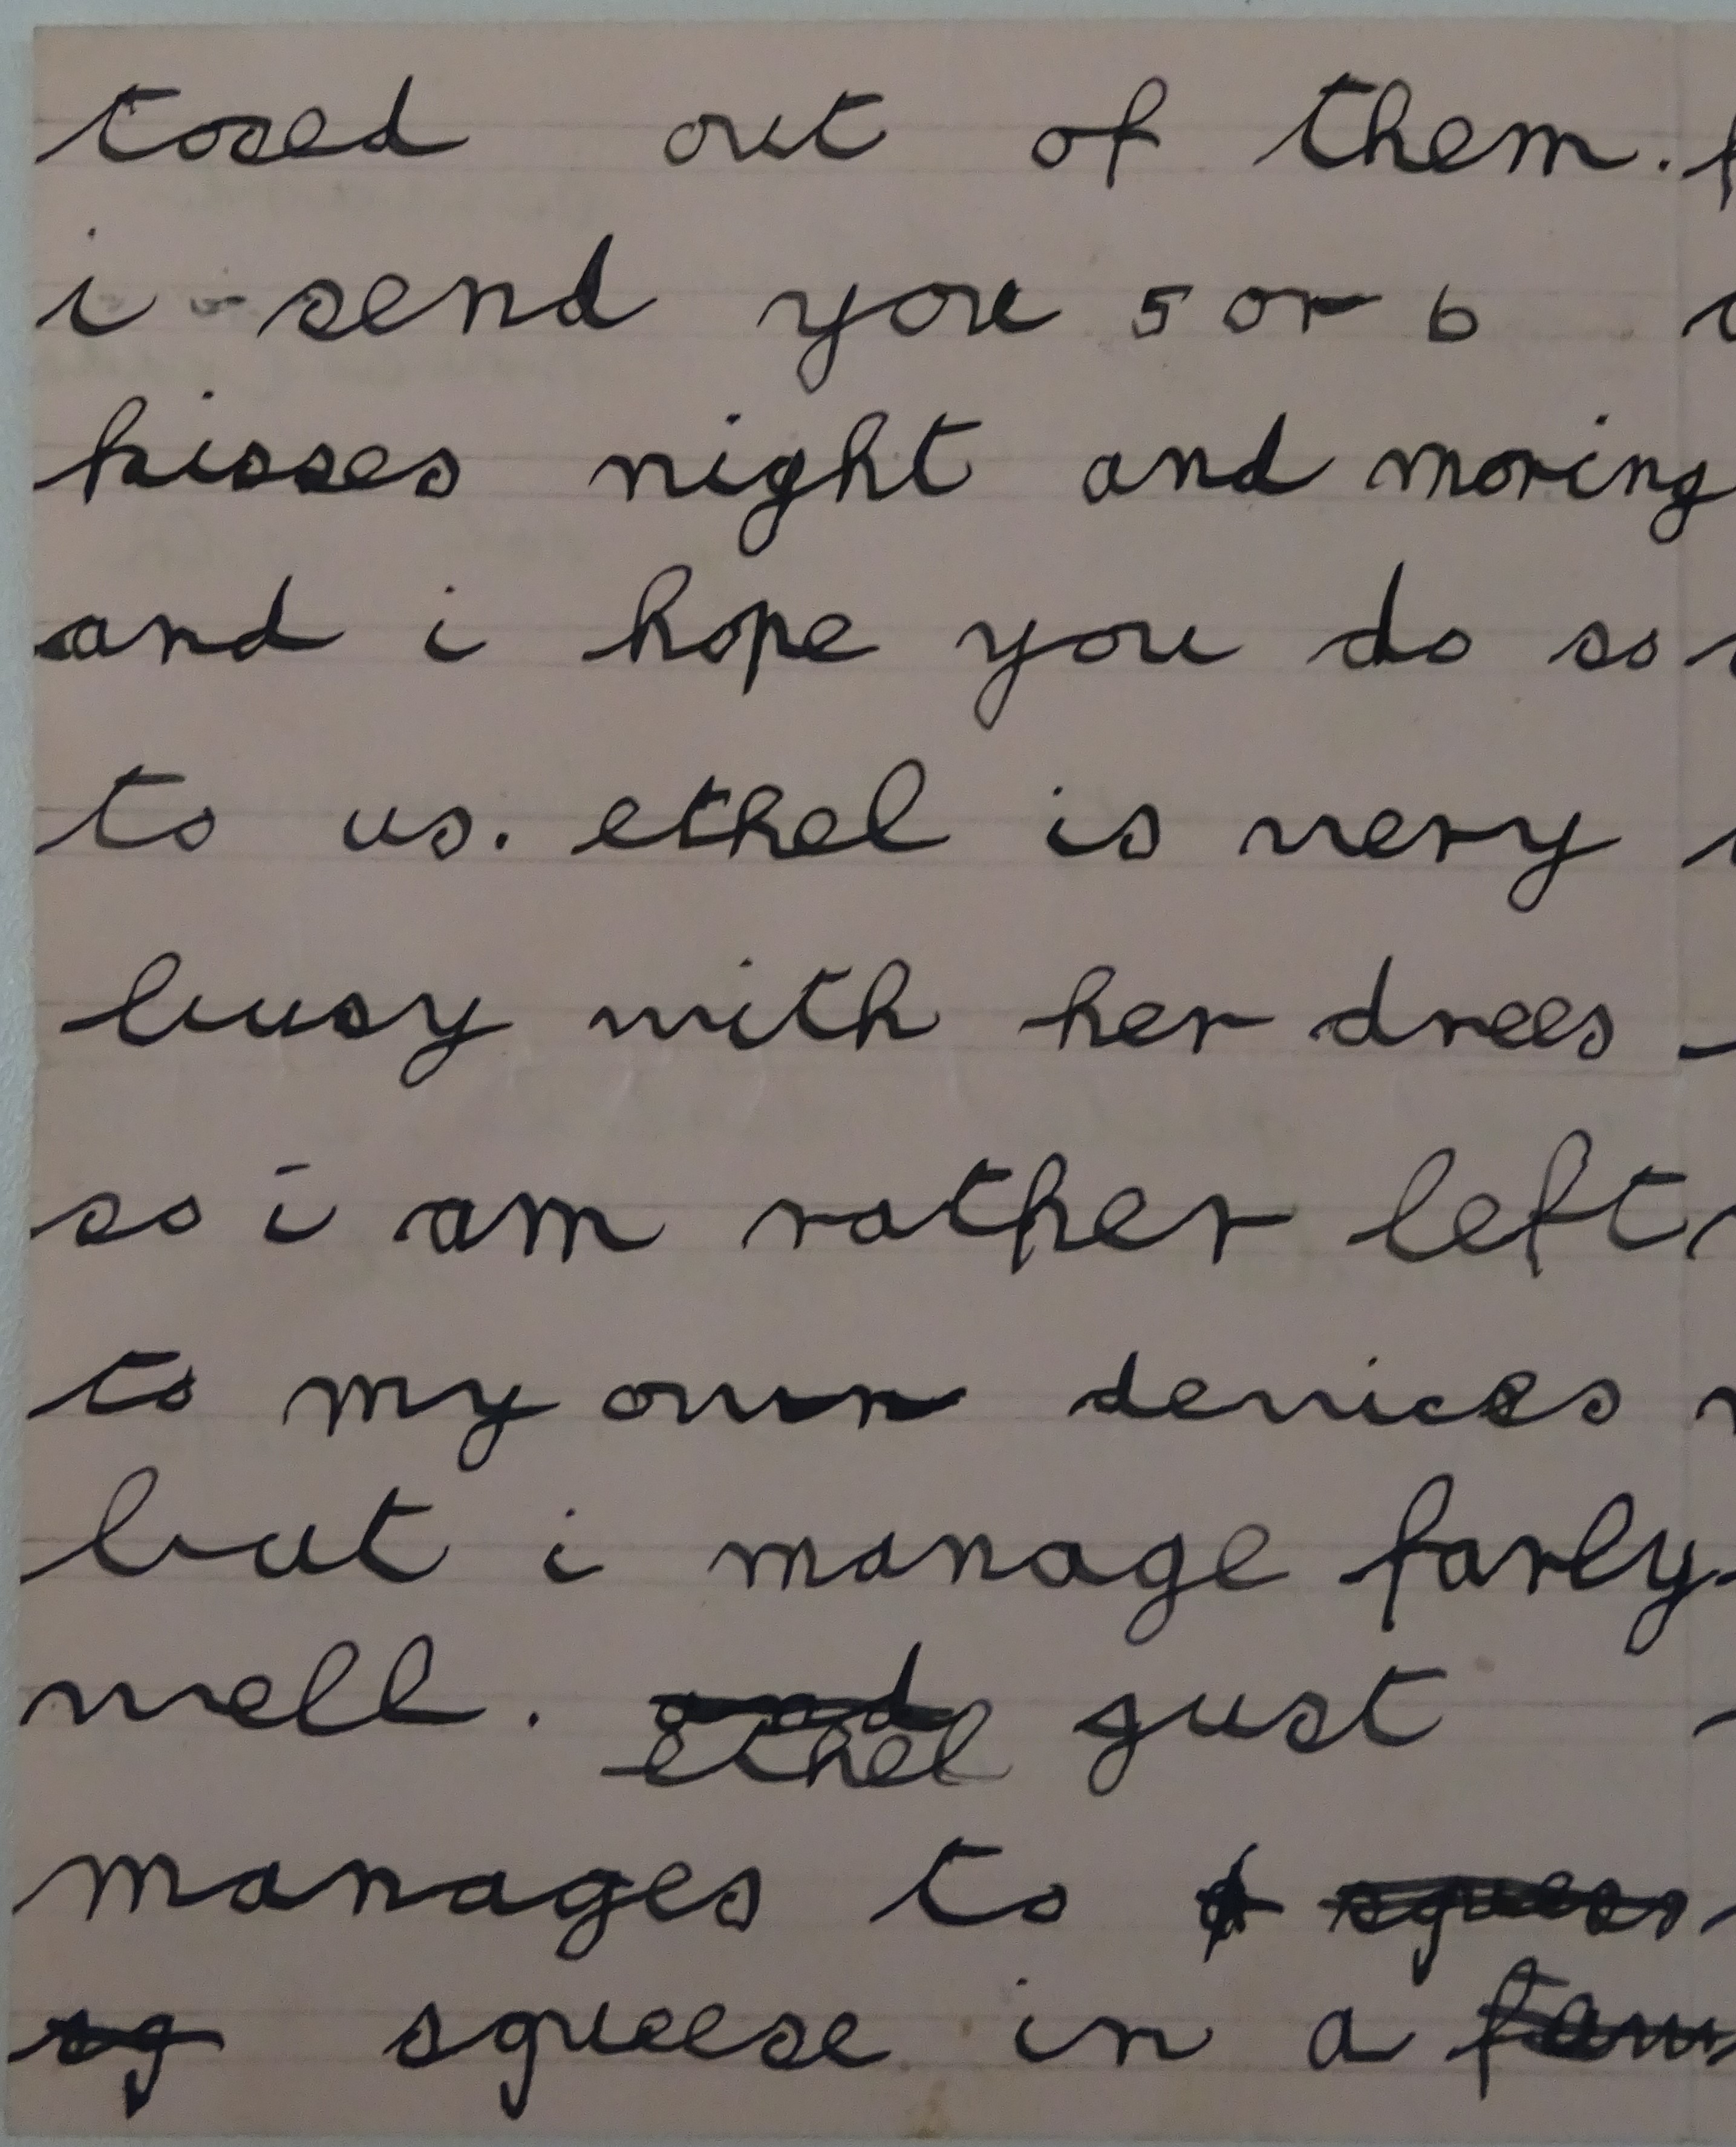 tosed out of them.
i send you 5 or 6
kisses night and moring
and i hope you do so
to us. ethel is very
busy with her drees
so i am rather left
to my own devices
but i manage farly
well. and ethel gust
manages to squees
sq squeese in a